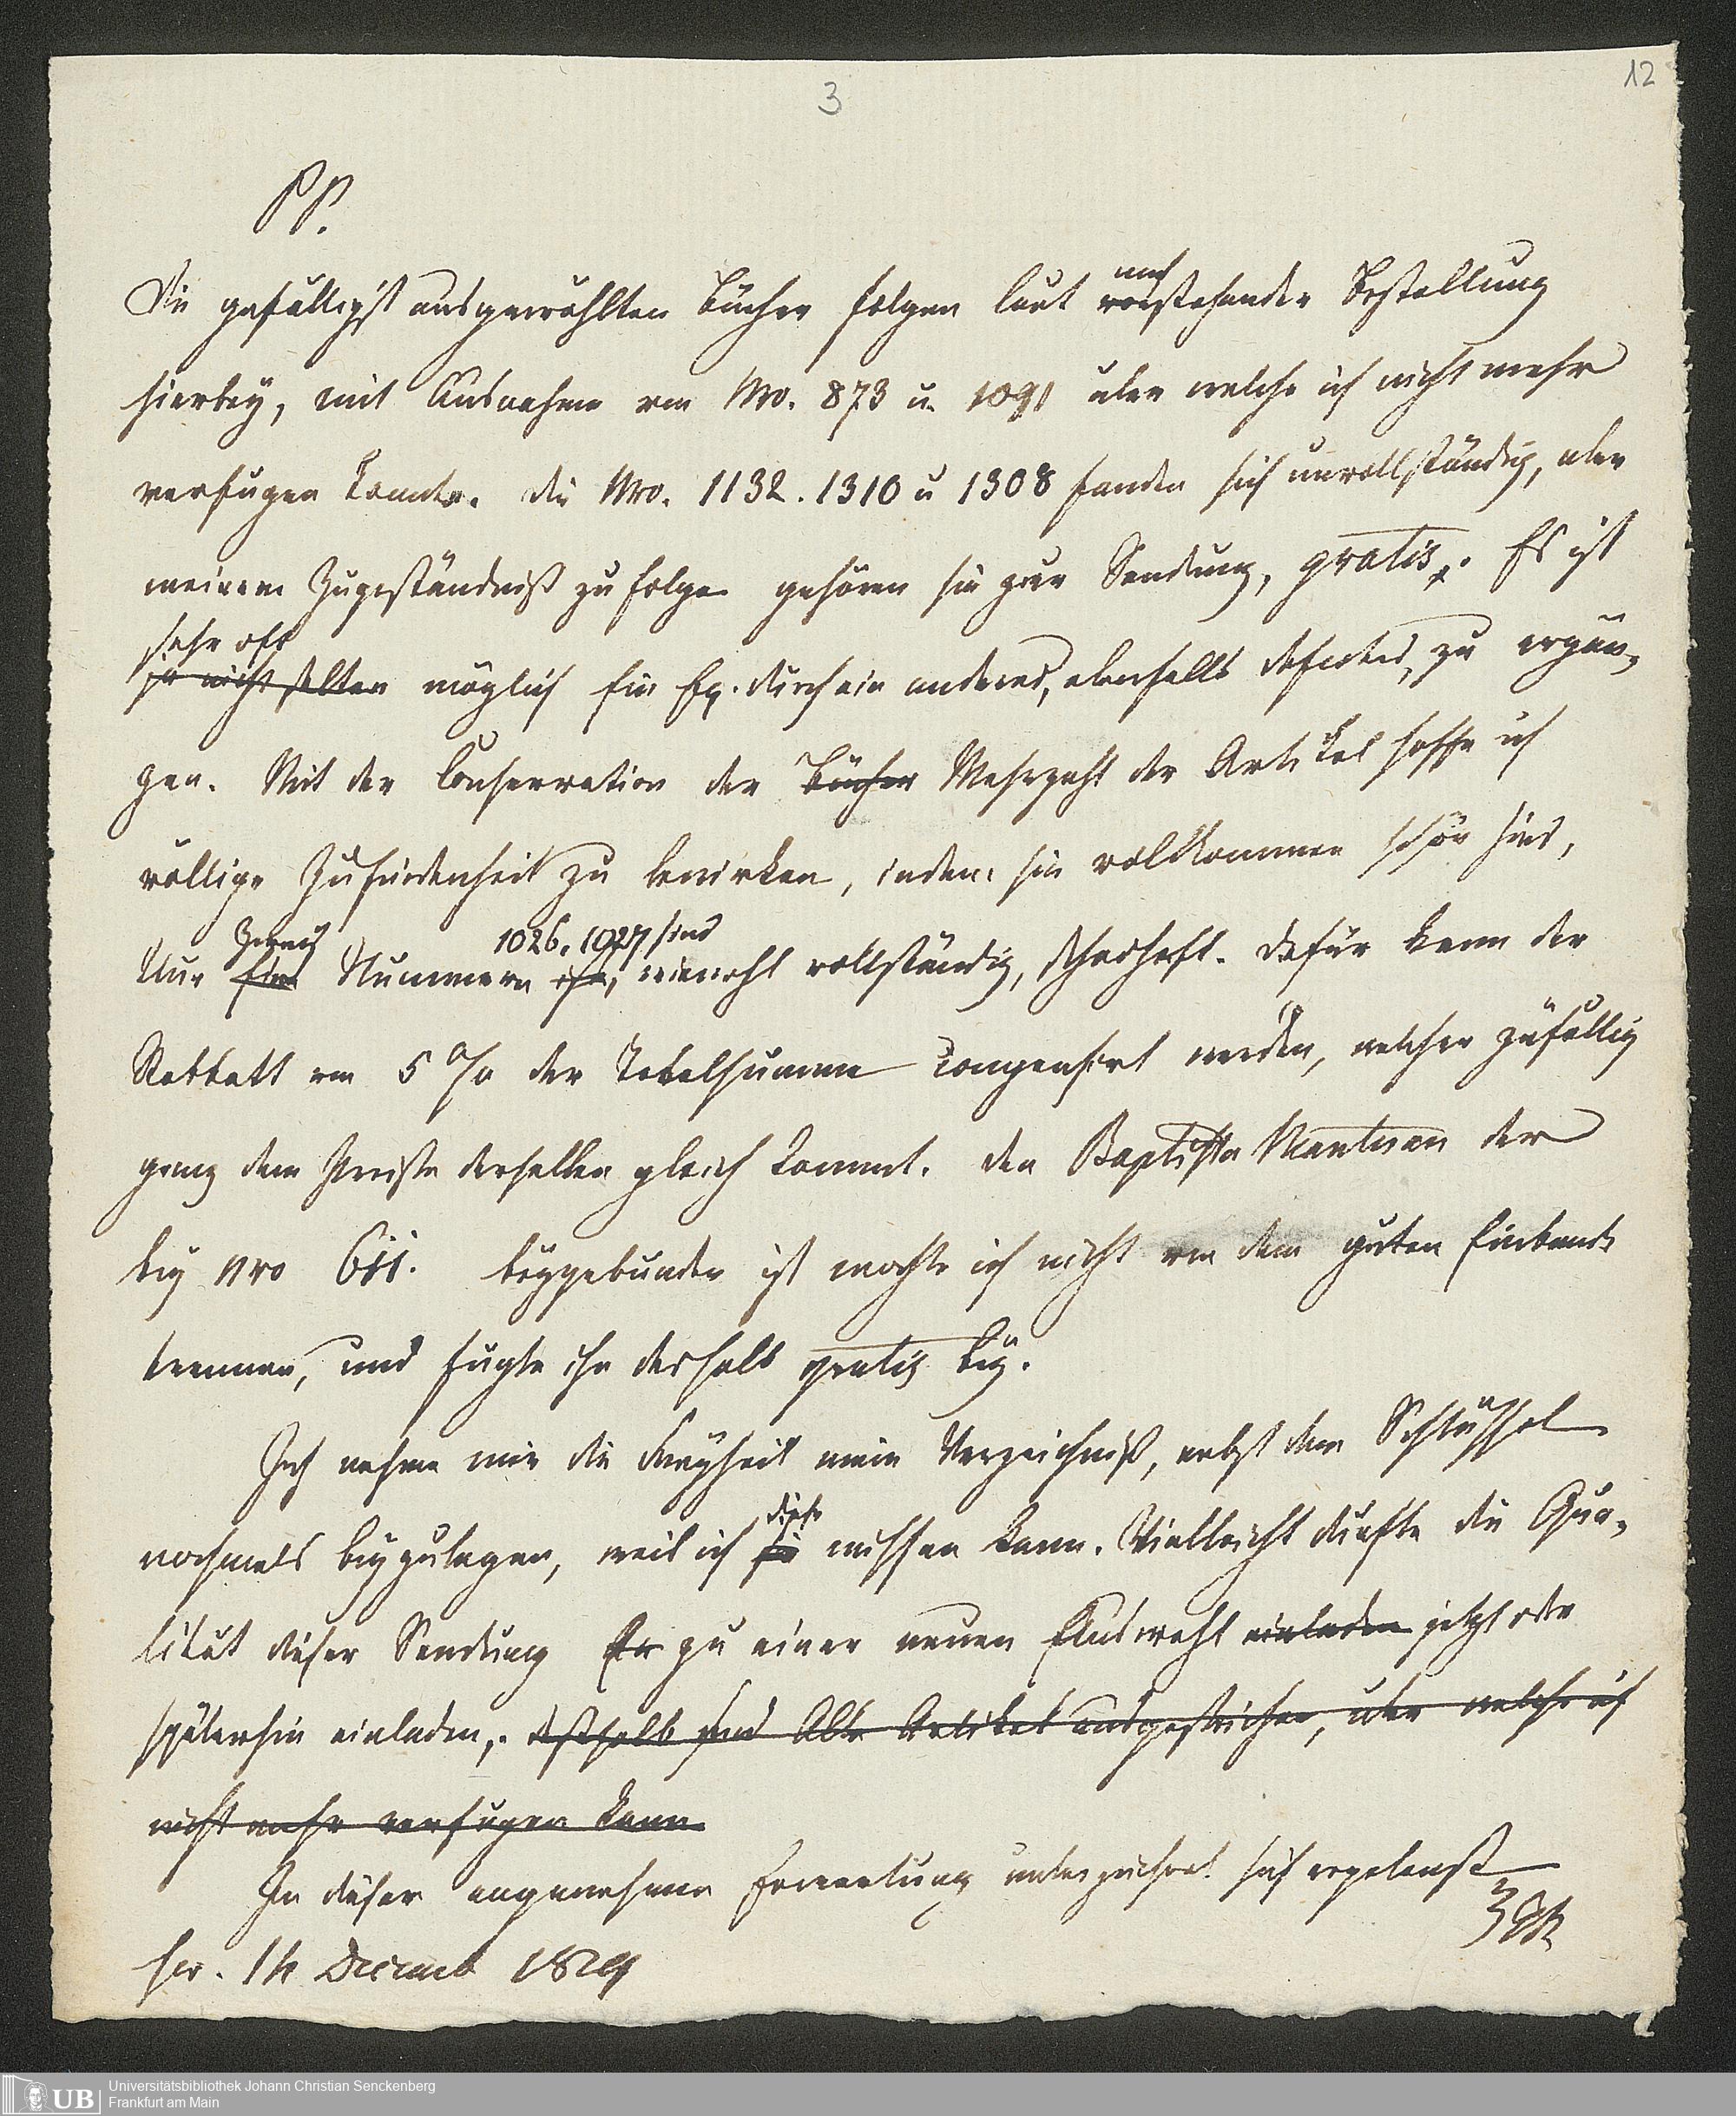 3
12
PP.
Die gefälligst ausgewählten Bücher folgen laut vorstehender Bestellung
nach
hierbey, mit Ausnahme von Nro. 873 u. 1091 über welche ich nicht mehr
verfügen konnte. Die Nro. 1132. 1310 u 1308 fanden sich unvollständig, aber
meinem Zugeständniß zu folge gehören sie zur Sendung, gratis. Es ist
sehr oft
ja nicht selten möglich Ein Ex. durch ein anderes, ebenfalls defectes, zu ergän-
zen. Mit der Conservation der Bücher Mehrzahl der Artikel hoffe ich
völlige Zufriedenheit zu bewirken, indem sie vollkommen schön sind,
Nur Eine Nummern wiewohl vollständig, schadhaft. Dafür kann der
1026. 1027 sind
Rabbatt von 5 % der Totalsumme compensirt werden, welcher zufällig
ganz dem Preise derselben gleich kommt. Den Baptista Mantuan der
bey nro 611. beygebunden ist mochte ich nicht von dem guten Einbande
trennen, und fügte ihn deshalb gratis bey.
Ich nehme mir die Freyheit mein Verzeichniß, nebst dem Schlüssel
nochmals beyzulegen, weil ich sie missen kann. Vielleicht dürfte die Qua-
diese
lität dieser Sendung zu einer neuen Auswahl einladen jetzt oder
späterhin einladen, deßhalb sind Alle Artikel ausgestrichen, über welche ich
nicht mehr verfügen kann.
In dieser angenehmen Erwartung unterzeichnet sich ergebenst
14 Decemb 1829
UB
Universitätsbibliothek Johann Christian Senckenberg
Frankfurt am Main